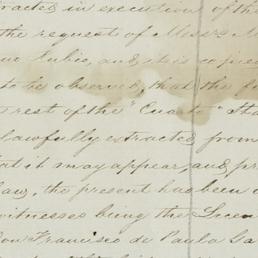 in execution of the
the request of Messrs M
and it is copied
to be observed, that the
rest of the "Cuarto" Sta
lawfully extracted from
at it may appear, and pr
law, the present has been
witnesses being the Licen
Don Francisco de Paula Ga